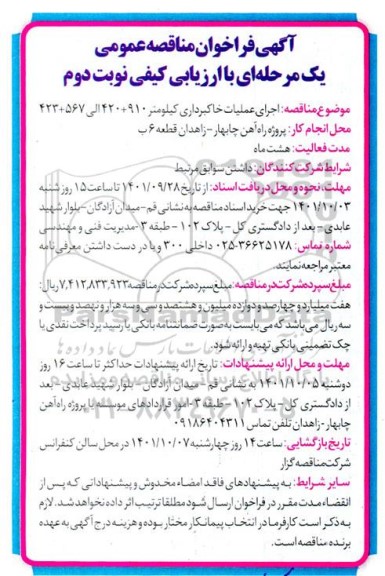 آگهی فراخوان مناقصه عمومی
یک مرحله‌ای با ارزیابی کیفی نوبت دوم
موضوع مناقصه: اجرای عملیات خاکبرداری کیلومتر ۹۱۰+۴۲۰ الی ۵۶۷+۴۲۳
محل انجام کار: پروژه راه‌آهن چابهار - زاهدان قطعه ۶ ب
مدت فعالیت: هشت ماه
شرایط شرکت کنندگان: داشتن سوابق مرتبط
مهلت، نحوه و محل دریافت اسناد: از تاریخ ۱۴۰۱/۰۹/۲۸ تا ساعت ۱۵ روز شنبه
۱۴۰۱/۱۰/۰۳ جهت خرید اسناد مناقصه به نشانی قم - میدان آزادگان - بلوار شهید
عابدی - بعد از دادگستری کل - پلاک ۱۰۲ - طبقه ۳ - مدیریت فنی و مهندسی
شماره تماس: ۳۶۶۲۵۱۷۸-۰۲۵ داخلی ۳۰۰ و با در دست داشتن معرفی نامه
معتبر مراجعه نمایند.
مبلغ سپرده شرکت در مناقصه: مبلغ سپرده شرکت در مناقصه ۷,۴۱۲,۸۳۳,۹۲۳ ریال:
هفت میلیارد و چهارصد و دوازده میلیون و هشتصد و سی و سه هزار و نهصد و بیست و
سه ریال می باشد که می بایست به صورت ضمانتنامه بانکی یا رسید پرداخت نقدی یا
چک تضمینی بانکی تهیه و ارائه شود.
مهلت و محل ارائه پیشنهادات: تاریخ ارائه پیشنهادات حداکثر تا ساعت ۱۶ روز
دوشنبه ۱۴۰۱/۱۰/۰۵ به نشانی قم - میدان آزادگان - بلوار شهید عابدی - بعد
از دادگستری کل - پلاک ۱۰۲ - طبقه ۳ - امور قراردادهای موسسه یا پروژه راه‌آهن
چابهار - زاهدان تلفن تماس ۰۹۱۸۶۴۰۴۳۱۱
تاریخ بازگشایی: ساعت ۱۴ روز چهارشنبه ۱۴۰۱/۱۰/۰۷ در محل سالن کنفرانس
شرکت مناقصه گزار
سایر شرایط: به پیشنهادهای فاقد امضاء مخدوش و پیشنهاداتی که پس از
انقضاء مدت مقرر در فراخوان ارسال شود مطلقا ترتیب اثر داده نخواهد شد. لازم
به ذکر است کارفرما در انتخاب پیمانکار مختار بوده و هزینه درج آگهی به عهده
برنده مناقصه است.